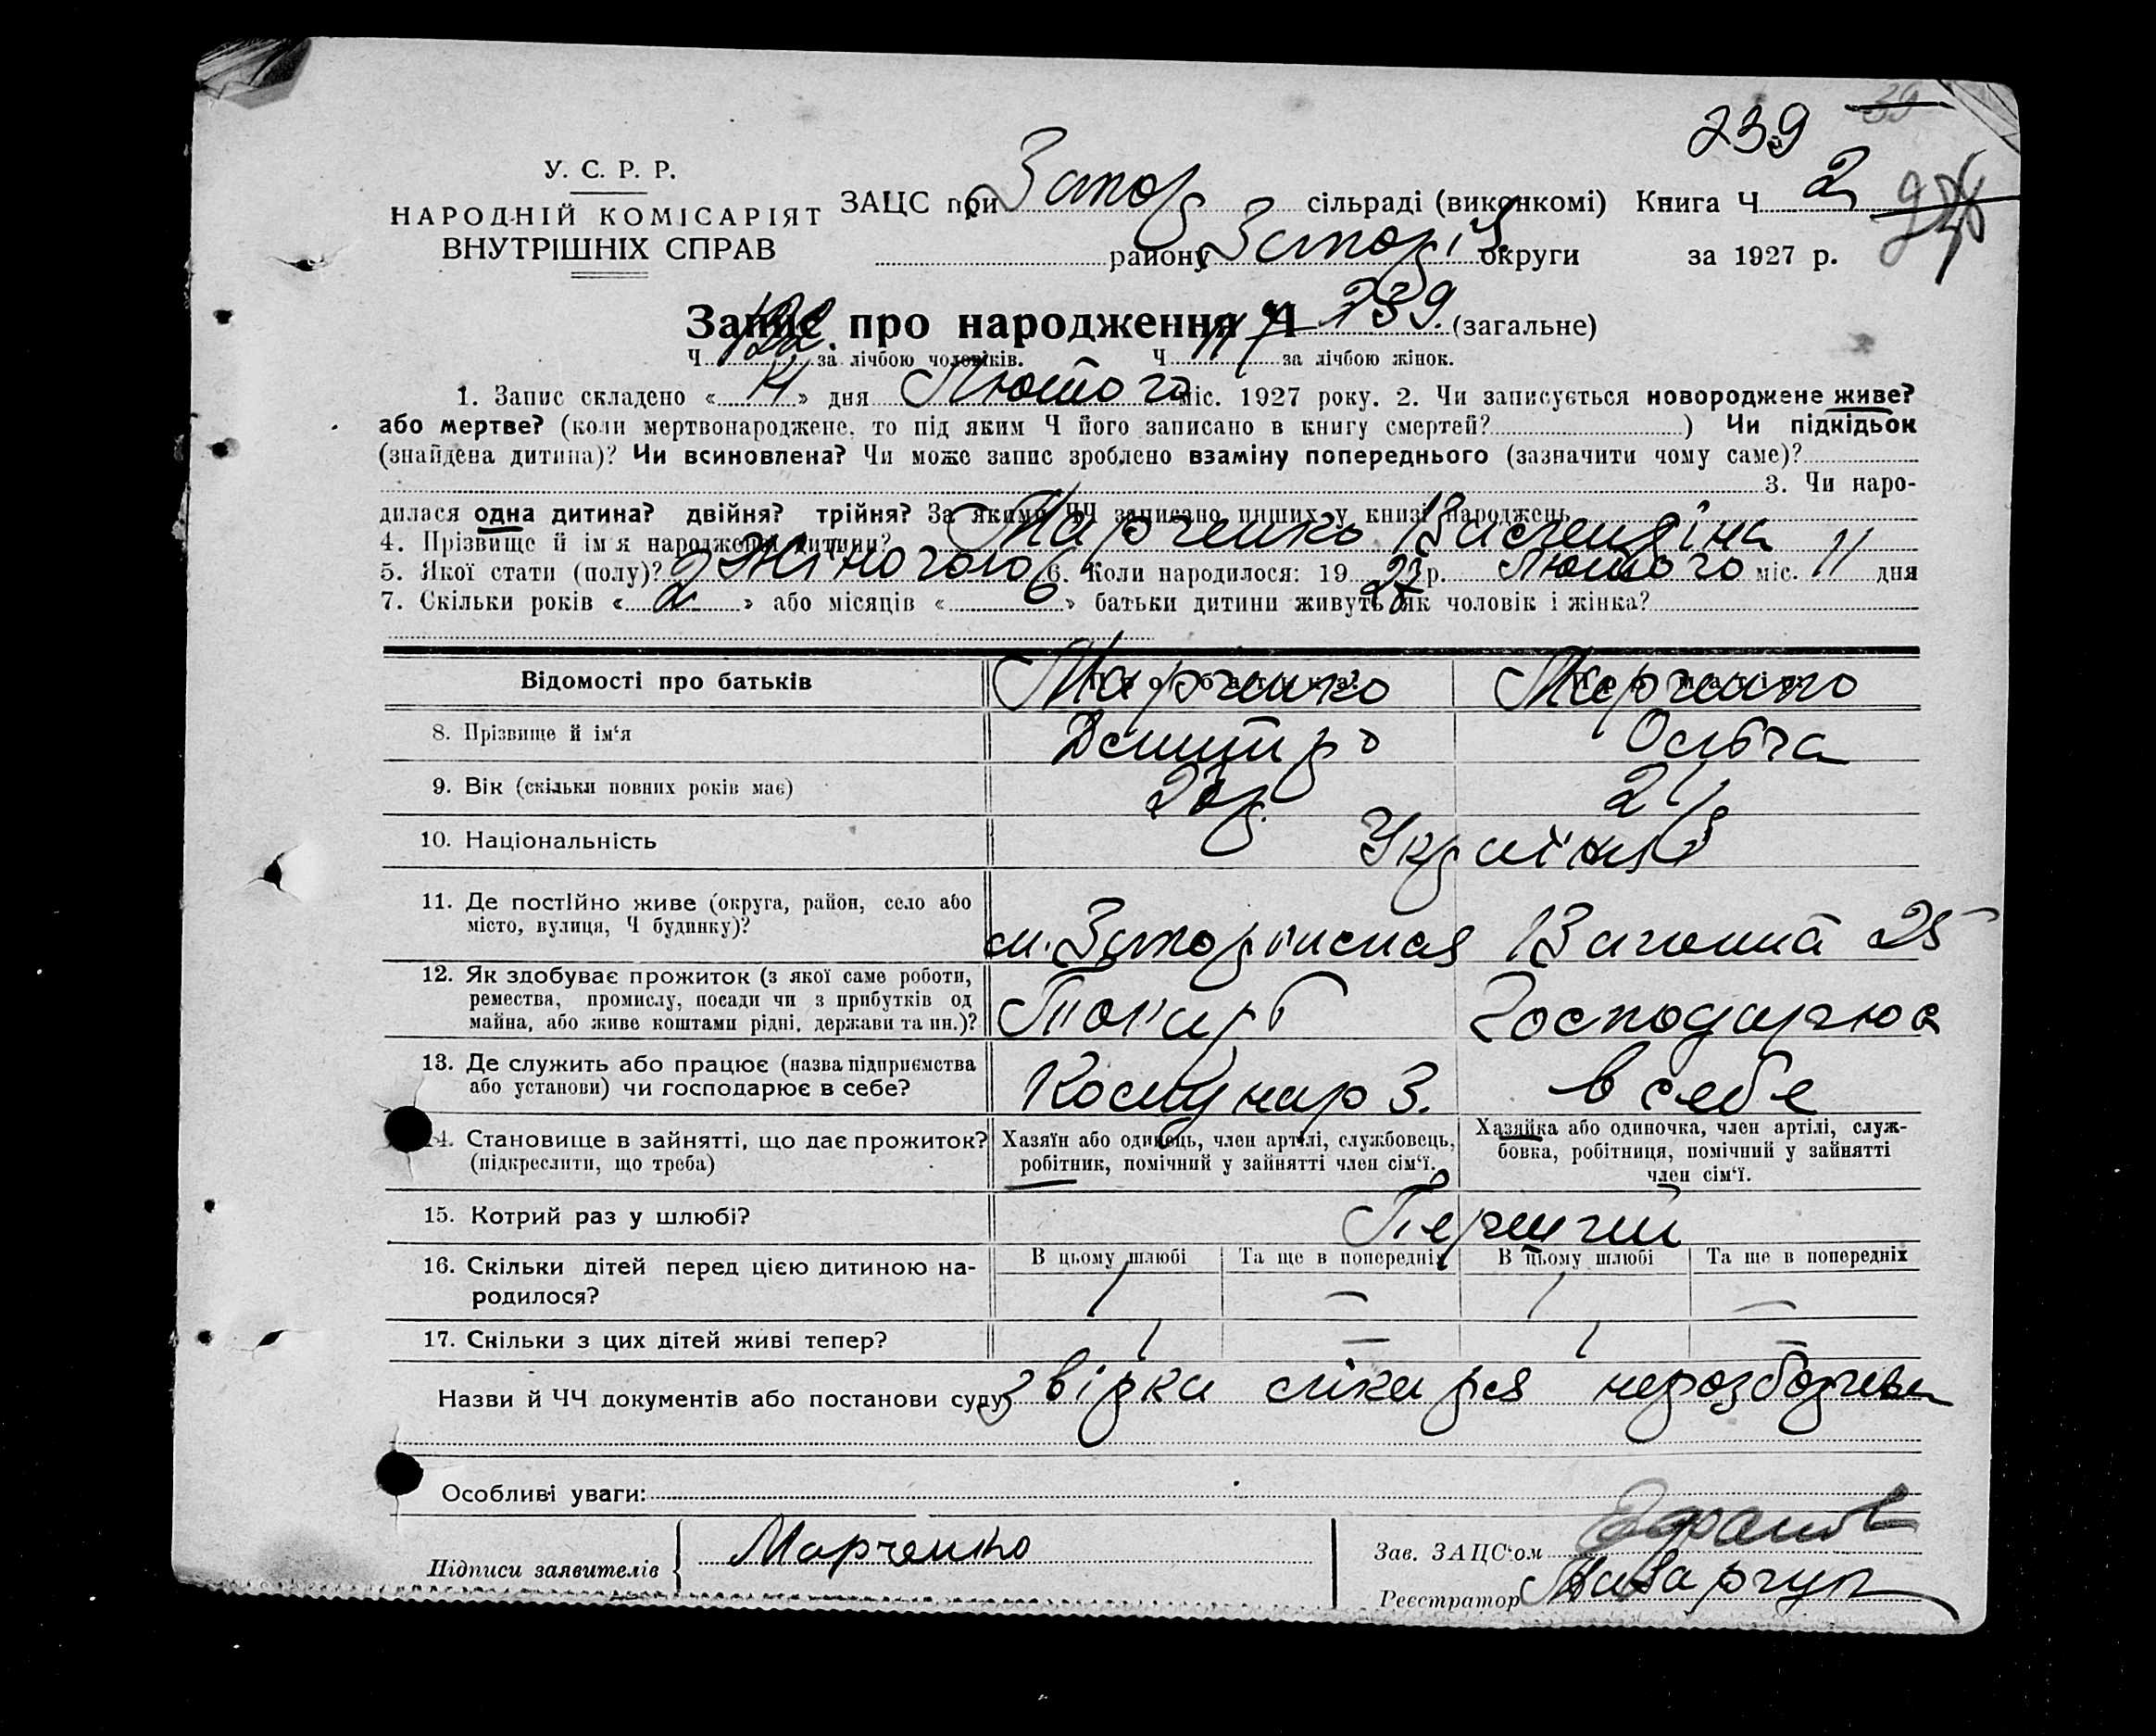 239 39
У. С. Р. Р.
НАРОДНІЙ КОМІСАРІЯТ
ВНУТРІШНІХ СПРАВ
ЗАЦС при Запор сільраді (виконкомі) Книга Ч 2
району Запоріз округи за 1927 р.
Запис про народження Ч 239. (загальне)
Ч 122. за лічбою чоловіків. Ч 117 за лічбою жінок.
1. Запис складено « 14 » дня Лютого міс. 1927 року. 2. Чи записується новороджене живе?
або мертве? (коли мертвонароджене, то під яким Ч його записано в книгу смертей? ) Чи підкідьок
(знайдена дитина)? Чи всиновлена? Чи може запис зроблено взаміну попереднього (зазначити чому саме)?
3. Чи наро-
дилася одна дитина? двійня? трійня? За якими ЧЧ записано инших у книзі народжень
4. Прізвище й ім'я народженої дитини? Марченко Валентіна
5. Якої стати (полу)? Жіночого 6. Коли народилося: 19 27 р. Лютого міс. 11 дня
7. Скільки років « 2 » або місяців « 6 » батьки дитини живуть як чоловік і жінка?
Відомості про батьків Марченко Марченко
8. Прізвище й ім'я Дмитро Ольга
9. Вік (скільки повних років має) 21
10. Національність Україн
11. Де постійно живе (округа, район, село або
місто, вулиця, Ч будинку)?
м. Запоріжжя 25
12. Як здобуває прожиток (з якої саме роботи,
ремества, промислу, посади чи з прибутків од
майна, або живе коштами рідні, держави та ин.)?
Токарь Господарює
13. Де служить або працює (назва підприємства
або установи) чи господарює в себе?
Комунар З. в себе
14. Становище в зайнятті, що дає прожиток?
(підкреслити, що треба)
Хазяїн або одинець, член артілі, службовець,
робітник, помічний у зайнятті член сім'ї.
Хазяйка або одиночка, член артілі, служ-
бовка, робітниця, помічний у зайнятті
член сім'ї.
15. Котрий раз у шлюбі? Перший
16. Скільки дітей перед цією дитиною на-
родилося?
В цьому шлюбі Та ще в попередніх В цьому шлюбі Та ще в попередніх
1 — 1 —
17. Скільки з цих дітей живі тепер? 1 — 1 —
Назви й ЧЧ документів або постанови суду звірка лікаря нерозборчева
Особливі уваги:
Підписи заявителів Марченко
Зав. ЗАЦС'ом
Реєстратор